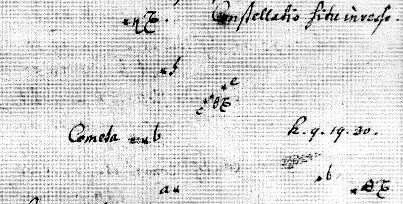 η
Constellatio situ inverso.
f
e
c
θ
Cometa
b
h. 9. 19. 30.
b
a
θ